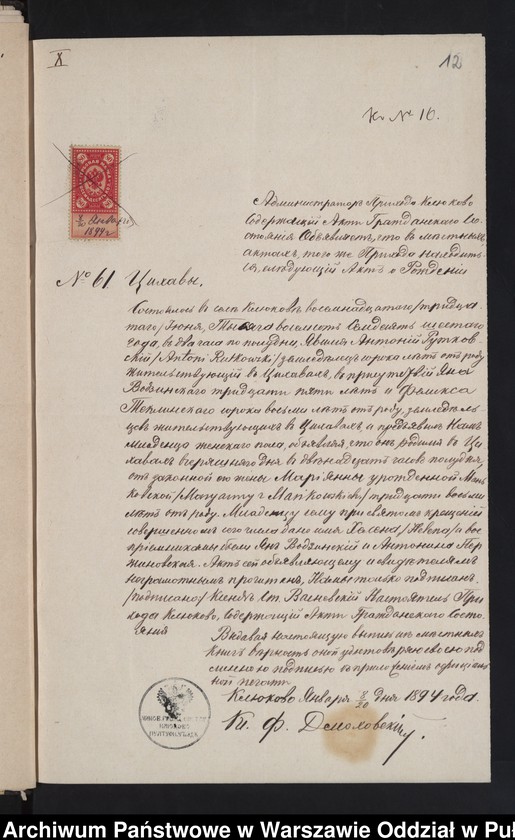 X
12
Къ № 16.
Администраторъ Прихода Клюково
содержащій Акты Гражданскаго Со-
стоянія Объявляетъ, что въ мѣстныхъ
актахъ, того же Прихода находит-
ся слѣдующій Актъ о Рожденіи
Января
1894 г
№ 61 Цихавы.
Состоялось въ селѣ Клюковѣ восемнадцатаго /тридца-
таго/ Іюня, Тысяча восемьсотъ Семдесятъ шестаго
года, въ два часа по полудни, Явился Антоній Рутков-
скій /Antoni Rutkowski/ земледѣлецъ сорока лѣтъ отъ роду
жительствующій въ Цихавахъ, въ присутствіи Яна
Тридцати пяти лѣтъ и Феликса
сорока восьми лѣтъ отъ роду, земледѣль-
цовъ жительствующихъ въ Цихавахъ, и предъявилъ Намъ
младенца женскаго пола, объявляя, что онъ родился въ Ци-
хавахъ вчерашняго дня въ двѣнадцать часовъ полудня,
отъ законной его жены Маріанны урожденной Мань-
ковской /Maryanny z Mańkowskich/ тридцати восьми
лѣтъ отъ роду. Младенцу сему при святомъ крещеніи
совершенномъ сего числа дано имя Хелена /Helena/ а вос-
пріемниками были Янъ и Антонина
Актъ сей объявляющему и свидѣтелямъ
неграмотнымъ прочитанъ, Нами только подписанъ.
/подписано/ Ксендзъ Ст. Настоятель При-
хода Клюково, Содержащій Акты Гражданскаго Состо-
янія
Выдавая настоящую выпись изъ мѣстныхъ
книгъ вѣрность оной удостовѣряю своею под-
писью съ приложеніемъ
ной печати
Клюково Января 8/20 дня 1894 года.
Кс. Ф.
Archiwum Państwowe w Warszawie Oddział w Puł